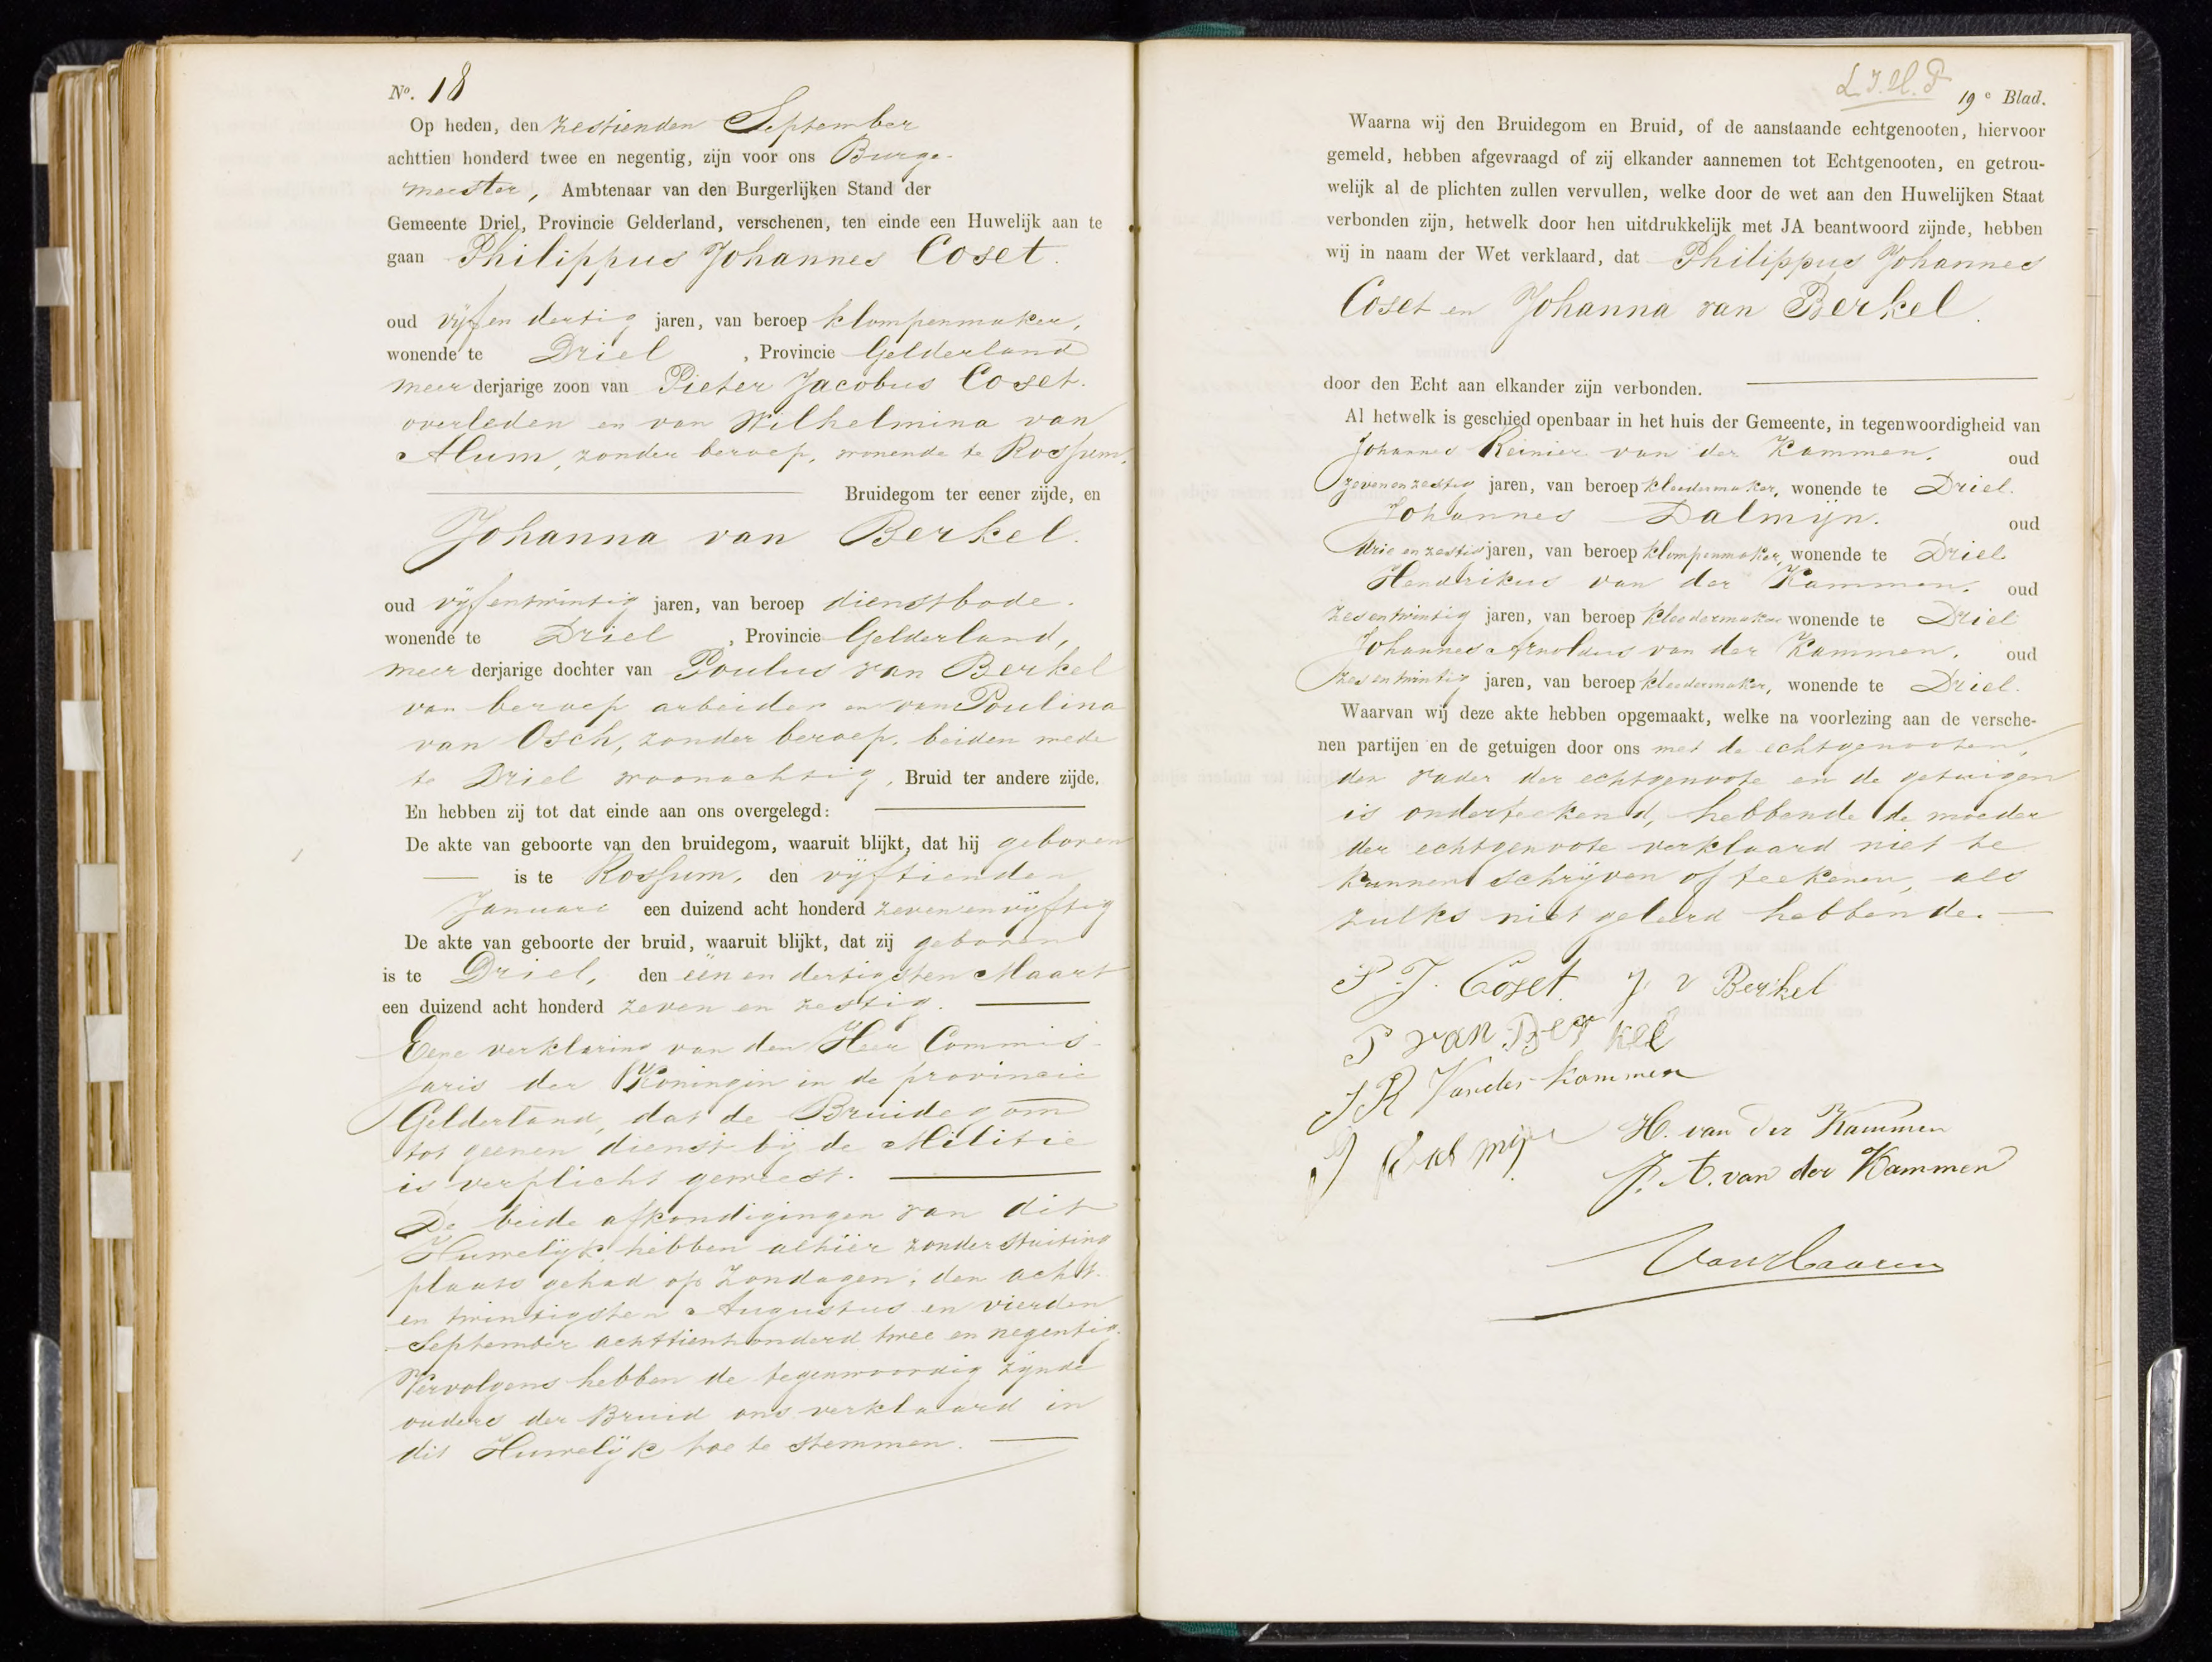 No. 18
Op heden, den zestienden September
achttien honderd twee en negentig, zijn voor ons Burge-
meester, Ambtenaar van den Burgerlijken Stand der
Gemeente Driel, Provincie Gelderland, verschenen, ten einde een Huwelijk aan te
gaan Philippus Johannes Coset.
oud vijf en dertig jaren, van beroep klompenmaker,
wonende te Driel, Provincie Gelderland
meer derjarige zoon van Pieter Jacobus Coset.
overleden en van Wilhelmina van
Alum, zonder beroep, wonende te Rossum,
Bruidegom ter eener zijde, en
Johanna van Berkel.
oud vijfentwintig jaren, van beroep dienstbode.
wonende te Driel, Provincie Gelderland,
meer derjarige dochter van Poulus van Berkel
van beroep arbeider en van Poulina
van Osch, zonder beroep, beiden mede
te Driel woonachtig, Bruid ter andere zijde.
En hebben zij tot dat einde aan ons overgelegd:
De akte van geboorte van den bruidegom, waaruit blijkt, dat hij geboren
is te Rossum, den vijftienden
Januari een duizend acht honderd zeven en vijftig
De akte van geboorte der bruid, waaruit blijkt, dat zij geboren
is te Driel, den een en dertigsten Maart
een duizend acht honderd zeven en zestig.
Eene verklaring van den Heer Commis-
saris der Koningin in de provincie
Gelderland, dat de Bruidegom
tot geenen dienst bij de Militie
is verplicht geweest.
De beide afkondigingen van dit
Huwelijk hebben alhier zonder stuiting
plaats gehad op Zondagen, den acht-
en twintigsten Augustus en vierden
September achttienhonderd twee en negentig.
Vervolgens hebben de tegenwoordig zijnde
ouders der Bruid ons verklaard in
dit Huwelijk toe te stemmen.
19e Blad.
Waarna wij den Bruidegom en Bruid, of de aanstaande echtgenooten, hiervoor
gemeld, hebben afgevraagd of zij elkander aannemen tot Echtgenooten, en getrou-
welijk al de plichten zullen vervullen, welke door de wet aan den Huwelijken Staat
verbonden zijn, hetwelk door hen uitdrukkelijk met JA beantwoord zijnde, hebben
wij in naam der Wet verklaard, dat Philippus Johannes
Coset en Johanna van Berkel.
door den Echt aan elkander zijn verbonden.
Al hetwelk is geschied openbaar in het huis der Gemeente, in tegenwoordigheid van
Johannes Reinier van der Kammen, oud
zevenenzestig jaren, van beroep kleedermaker, wonende te Driel.
Johannes Dalmijn. oud
drie en zestig jaren, van beroep klompenmaker, wonende te Driel
Hendrikus van der Kammen, oud
zesentwintig jaren, van beroep kleedermaker wonende te Driel
Johannes Arnoldus van der Kammen, oud
zesentwintig jaren, van beroep kleedermaker, wonende te Driel.
Waarvan wij deze akte hebben opgemaakt, welke na voorlezing aan de versche-
nen partijen en de getuigen door ons met de echtgenooten,
den vader der echtgenoote en de getuigen
is onderteekend, hebbende de moeder
der echtgenoote verklaard niet te
kunnen schrijven of teekenen, als
zulks niet geleerd hebbende.
P. J. Coset. J. v Berkel
P van Berkel
J R Vander Kammen
J Dalmijn H. van der Kammen
J. A. van der Kammen
VanHaaren